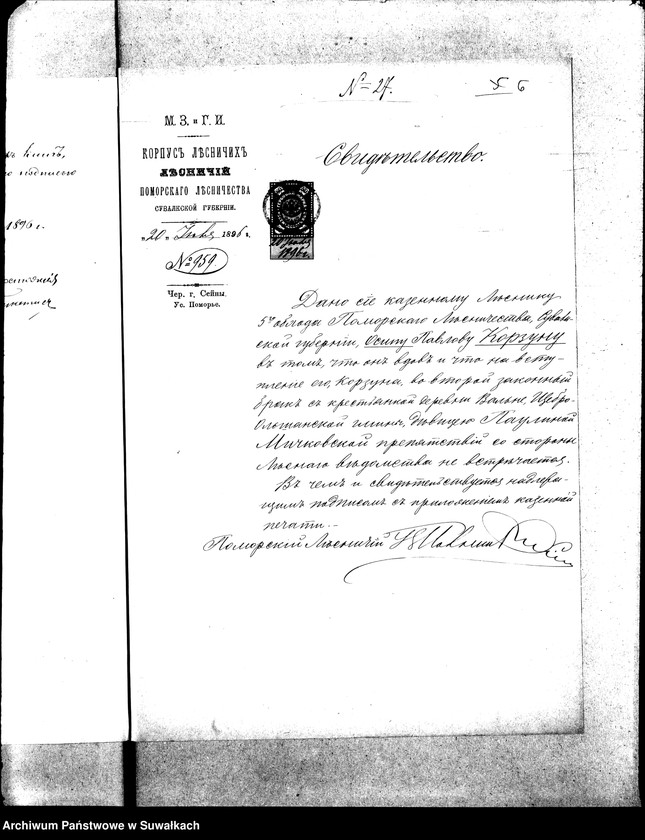 № 27.
6
М. З. и Г. И.
КОРПУСЪ ЛѢСНИЧИХЪ
ЛѢСНИЧІЙ
ПОМОРСКАГО ЛѢСНИЧЕСТВА
СУВАЛКСКОЙ ГУБЕРНІИ.
„20„ Іюня 1896 г.
№ 959.
Чер. г. Сейны,
Ус. Поморье.
Свидѣтельство.
1896 г.
Дано сіе казенному лѣснику
5го обхода Поморскаго Лѣсничества, Сувалк-
ской губерніи, Осипу Павлову Корзуну
въ томъ, что онъ вдовъ и что на всту-
пленіе его, Корзуна, во второй законный
бракъ съ крестьянкой деревни Вольне, Щебро-
Ольшанской гмины, дѣвицею Паулиной
Мичковской препятствій со стороны
Лѣснаго вѣдомства не встрѣчается.
Въ чемъ и свидѣтельствуется надлежа-
щимъ подписомъ съ приложеніемъ казенной
печати.
Поморскій Лѣсничій
1896 г.
Archiwum Państwowe w Suwałkach